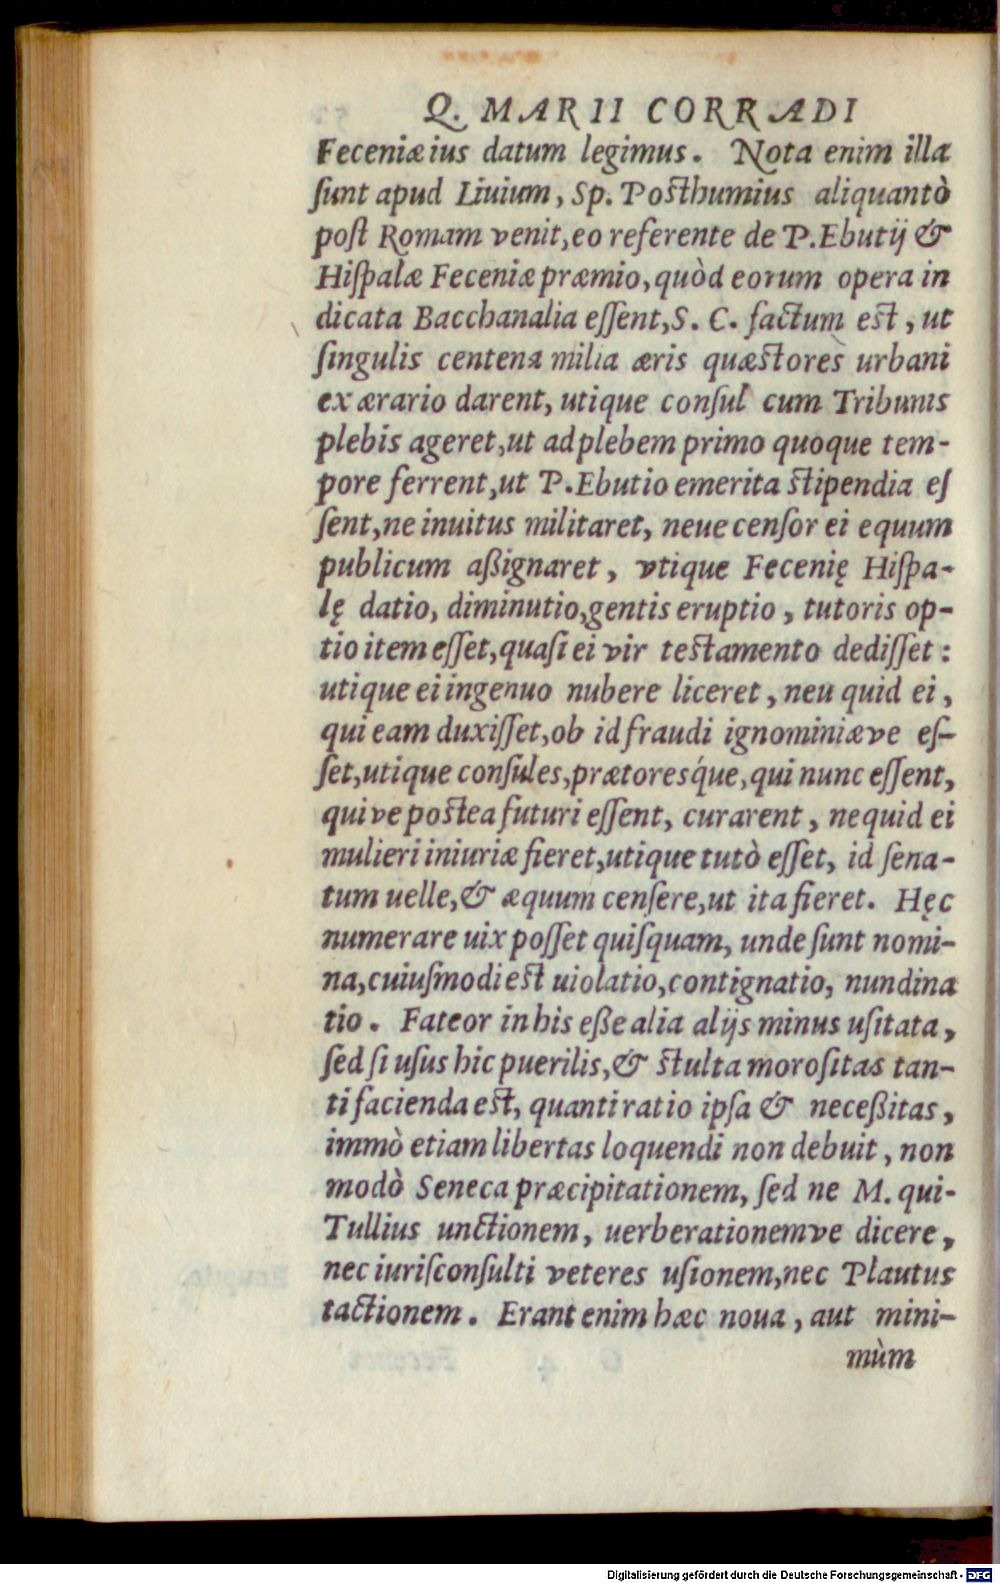 Q. MARII CORRADI
Feceniæ ius datum legimus. Nota enim illa
ſunt apud Liuium, Sp. Poſthumius aliquantò
poſt Romam venit, eo referente de P. Ebutij &
Hiſpalæ Feceniæ præmio, quòd eorum opera in
dicata Bacchanalia eſſent, S. C. factum eſt, ut
ſingulis centena milia æris quæſtores urbani
ex ærario darent, utique conſul cum Tribunis
plebis ageret, ut ad plebem primo quoque tem-
pore ferrent, ut P. Ebutio emerita ſtipendia eſ
ſent, ne inuitus militaret, neue cenſor ei equum
publicum aßignaret, vtique Fecenię Hiſpa-
lę datio, diminutio, gentis eruptio, tutoris op-
tio item eſſet, quaſi ei vir teſtamento dediſſet:
utique ei ingenuo nubere liceret, neu quid ei,
qui eam duxiſſet, ob id fraudi ignominiæve eſ-
ſet, utique conſules, prætoresq́ue, qui nunc eſſent,
qui ve poſtea futuri eſſent, curarent, nequid ei
mulieri iniuriæ fieret, utique tutò eſſet, id ſena-
tum uelle, & æquum cenſere, ut ita fieret. Hęc
numerare uix poſſet quiſquam, unde ſunt nomi-
na, cuiuſmodi eſt uiolatio, contignatio, nundina
tio. Fateor in his eße alia alijs minus uſitata,
ſed ſi uſus hic puerilis, & ſtulta moroſitas tan-
ti facienda eſt, quanti ratio ipſa & neceßitas,
immò etiam libertas loquendi non debuit, non
modò Seneca præcipitationem, ſed ne M. qui-
Tullius unctionem, uerberationemve dicere,
nec iuriſconſulti veteres uſionem, nec Plautus
tactionem. Erant enim hæc noua, aut mini-
mùm
Digitalisierung gefördert durch die Deutsche Forschungsgemeinschaft - DFG